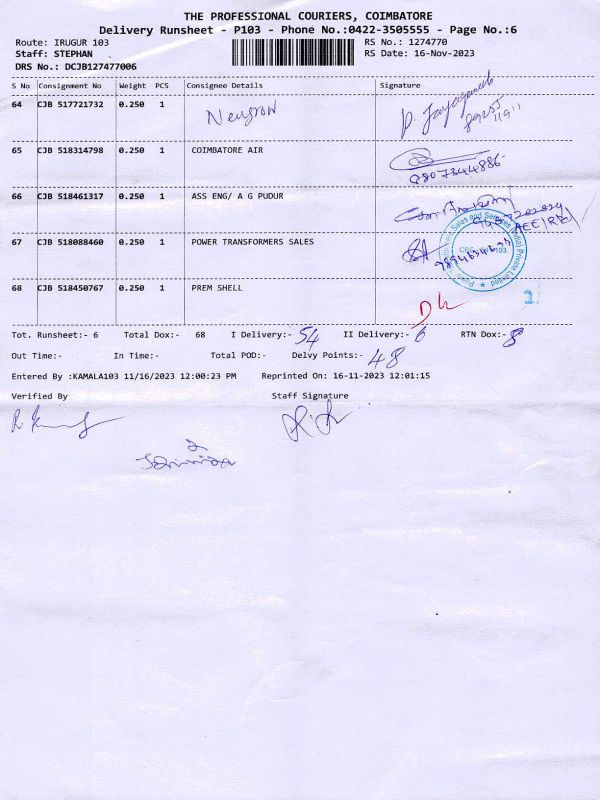 THE PROFESSIONAL COURIERS, COIMBATORE
Delivery Runsheet - P103 - Phone No.:0422-3505555 - Page No.:6
Route: IRUGUR 103 RS No.: 1274770
Staff: STEPHAN RS Date: 16-Nov-2023
DRS No.: DCJB127477006
S No Consignment No Weight PCS Consignee Details Signature
64 CJB 517721732 0.250 1 Neugrow
65 CJB 518314798 0.250 1 COIMBATORE AIR
9807344886
66 CJB 518461317 0.250 1 ASS ENG/ A G PUDUR
67 CJB 518088460 0.250 1 POWER TRANSFORMERS SALES
68 CJB 518450767 0.250 1 PREM SHELL
Tot. Runsheet:- 6 Total Dox:- 68 I Delivery:- 54 II Delivery:- 6 RTN Dox:- 8
Out Time:- In Time:- Total POD:- Delvy Points:- 48
Entered By :KAMALA103 11/16/2023 12:00:23 PM Reprinted On: 16-11-2023 12:01:15
Verified By Staff Signature